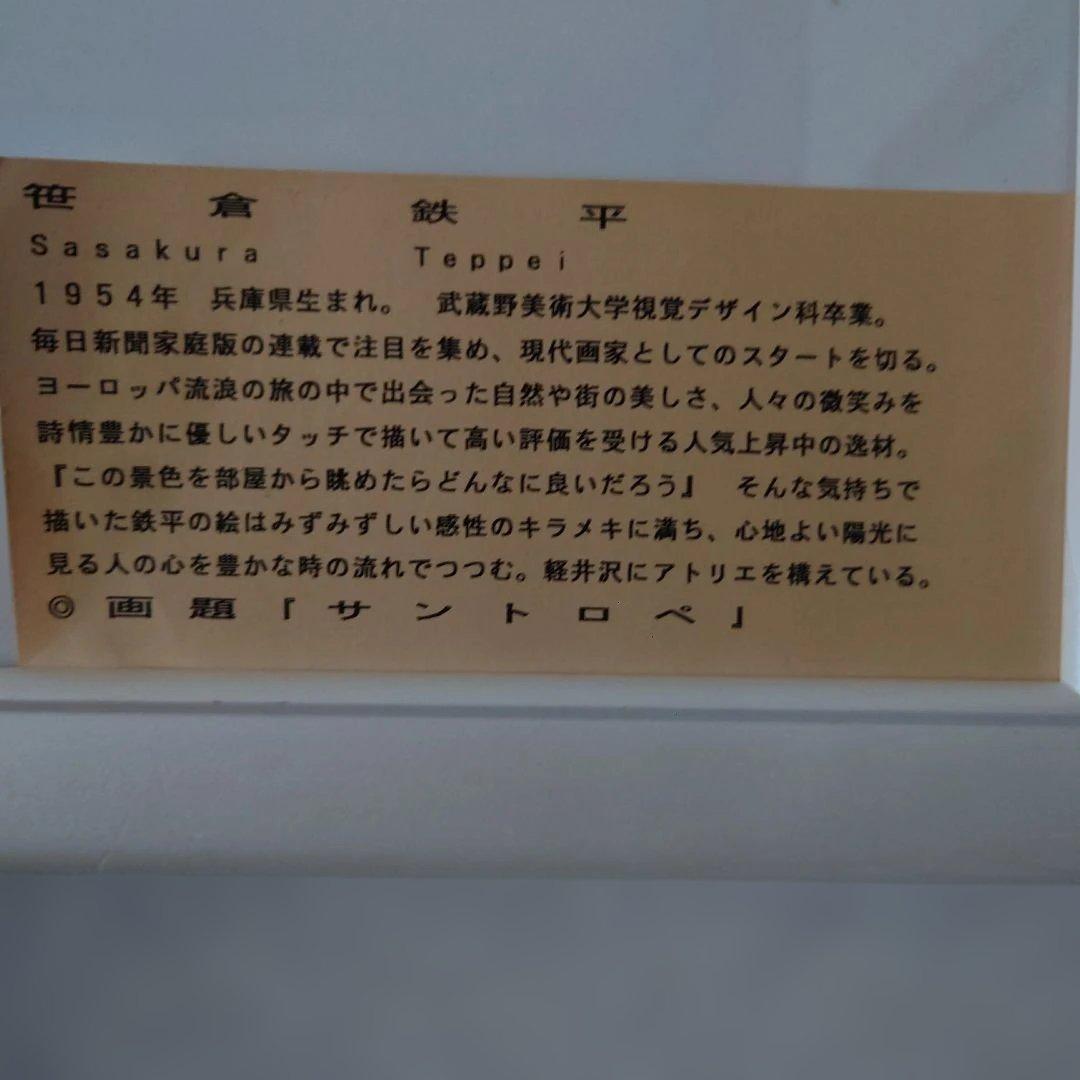 笹倉鉄平
Sasakura Teppei
1954年 兵庫県生まれ。 武蔵野美術大学視覚デザイン科卒業。
毎日新聞家庭版の連載で注目を集め、現代画家としてのスタートを切る。
ヨーロッパ流浪の旅の中で出会った自然や街の美しさ、人々の微笑みを
詩情豊かに優しいタッチで描いて高い評価を受ける人気上昇中の逸材。
『この景色を部屋から眺めたらどんなに良いだろう』 そんな気持ちで
描いた鉄平の絵はみずみずしい感性のキラメキに満ち、心地よい陽光に
見る人の心を豊かな時の流れでつつむ。軽井沢にアトリエを構えている。
◎画題「サントロペ」